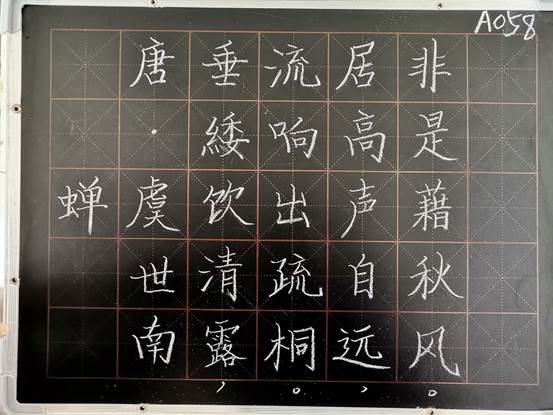 A058
蝉
唐·虞世南
垂緌饮清露，
流响出疏桐。
居高声自远，
非是藉秋风。